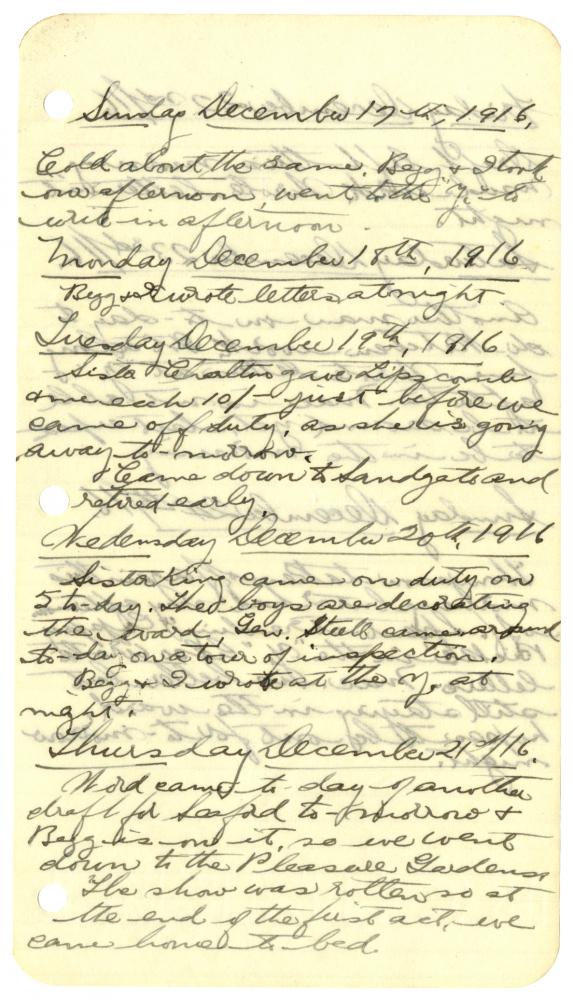 Sunday December 17th, 1916,
Cold about the same. Begg & I took
our afternoon, went to the "Y" to
write in afternoon.
Monday December 18th, 1916
Begg & I wrote letters at night.
Tuesday December 19th, 1916
Sister Chalton gave Lipscomb
& me each 10/- just before we
came off duty, as she is going
away to-morrow.
Came down to Sandgate and
retired early.
Wedensday December 20th, 1916
Sister King came on duty on
5 to-day. The boys are decorating
the ward, Gen. Steele came around
to-day on a tour of inspection.
Begg & I wrote at the Y. at
night.
Thursday December 21st/16.
Word came to-day of another
draft for Seaford to-morrow &
Begg is on it, so we went
down to the Pleasure Gardens.
The show was rotten so at
the end of the first act, we
came home to bed.